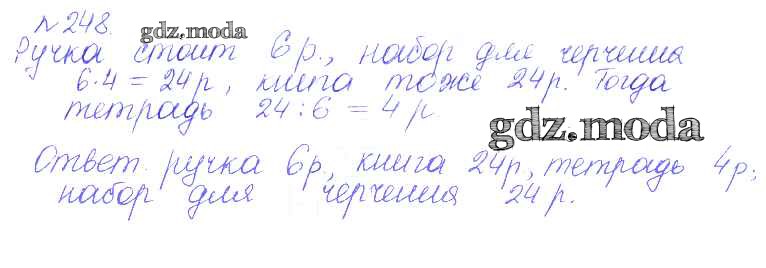 № 248.
gdz.moda
Ручка стоит 6 р., набор для черчения
6·4 = 24 р, книга тоже 24 р. Тогда
тетрадь 24 : 6 = 4 р
gdz.moda
Ответ. ручка 6 р, книга 24 р, тетрадь 4 р;
набор для черчения 24 р.